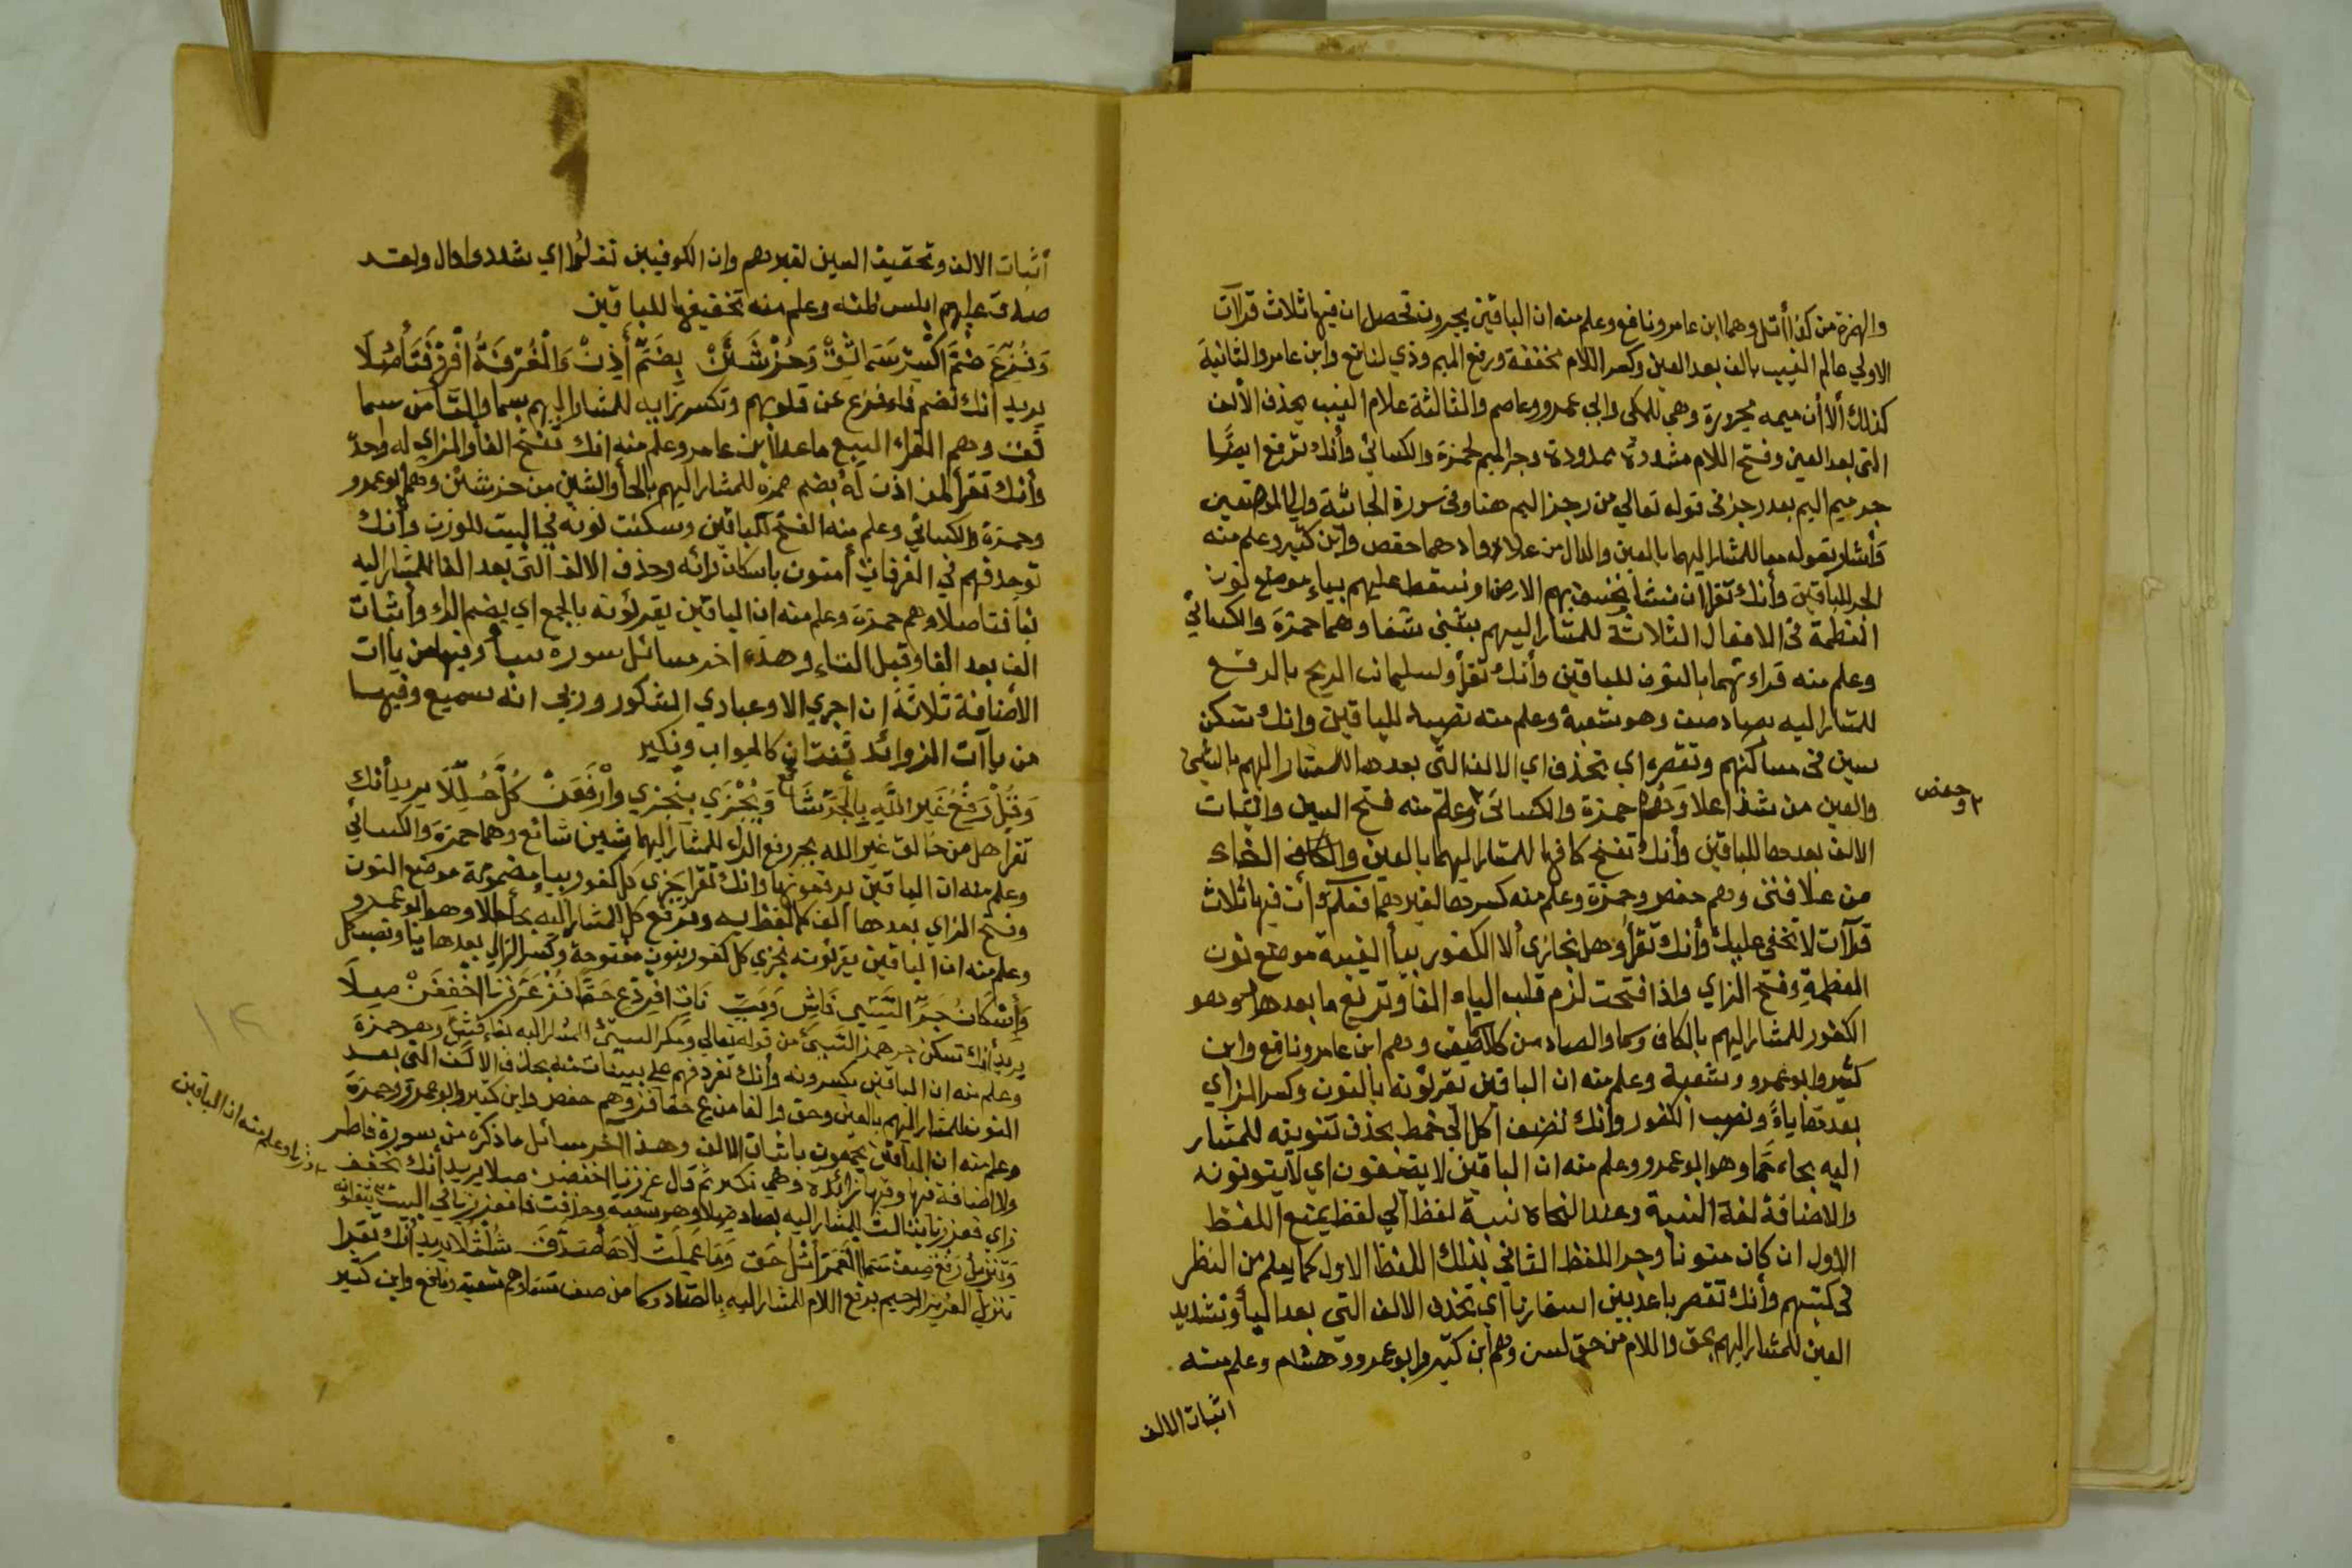 والهمزة من كذا أتل وهما ابن عامر ونافع وعلم منه ان الباقين يجرون تحصل ان فيها ثلاث قرآآت
الاولي عالم الغيب بالف بعد العين وكسر اللام مخففة ورفع الميم وذي لنافع وابن عامر والثانية
كذلك ألا أن ميمه مجرورة وهي للمكي وابي عمرو وعاصم والثالثة علام الغيب بحذف الألف
التي بعد العين وفتح اللام مشددة ممدودة وجر الميم لحمزة والكسائي وأنك ترفع ايضًا
جر ميم اليم بعد رجز في قوله تعالي من رجز اليم هنا وفي سورة الجاثية والي الموضعين
وأشار بقوله معا للمشار اليهما بالعين والدال من علا دواد هما حفص وابن كثير وعلم منه
الجر للباقين وأنك تقرا ان نشأ نخسف بهم الارض او نسقط عليهم بياء موضع نون
العظمة في الافعال الثلاثة للمشار اليهم بشين شفا وهما حمزة والكسائي
وعلم منه قراءتهما بالنون للباقين وأنك تقرأ ولسليمان الريح بالرفع
للمشار اليه بصاد صف وهو شعبة وعلم منه نصبه للباقين وانك تسكن
سين في مساكنهم وتقصره اي تحذف اي الالف التي بعدها للمشار اليهم بالشين
والعين من شذا علا وهم حمزة والكسائي ٢ وعلم منه فتح السين واثبات
٢ وحفص
الالف بعدها للباقين وأنك تفتح كافها للمشار اليهما بالعين والفاء
من علا فتى وهم حفص وحمزة وعلم منه كسرها لغيرهما فعلم أن فيها ثلاث
قرآآت لا تخفي عليك وأنك تقرأ وهل يجازى ألا الكفور بيأ الغيبة موضع نون
العظمة وفتح الزاي واذا فتحت لزم قلب الياء الفا وترفع ما بعدها وهو
الكفور للمشار اليهم بالكاف وسما والصاد من كم وهم ابن عامر ونافع وابن
كثير وابو عمرو وشعبة وعلم منه ان الباقين يقرؤنه بالنون وكسر الزاي
بعدها ياءً ونصب الكفور وانك تضيف اكل الي خمط بحذف تنوينه للمشار
اليه بحاء حما وهو ابو عمرو وعلم منه ان الباقين لا يضيفون اي لا ينونونه
والاضافة لغة النسبة وعند النحاة نسبة لفظ الي لفظ يمنع اللفظ
الاول ان كان منونا وجر اللفظ الثاني بذلك اللفظ الاول كما يعلم من النظر
في كتبهم وأنك تقصر باعد بين اسفارنا اي تحذف الالف التي بعد البأ وتشديد
العين للمشار اليهم بحق واللام من حق لسن وهم ابن كثير وابو عمرو وهشام وعلم منه
اثبات الالف
أثبات الالف وتخفيف العين لغيرهم وان الكوفيين ثقلوا اي شددوا دال ولقد
صدق عليهم ابليس ظنه وعلم منه تخفيفها للباقين
وَفُزِّعَ ضُمَّ اكْسِرْ سَمَا ثِقْ وَحُزْ شَئَنْ بِضَمِّ أُذِنْ وَالْغُرْفَةُ افْرِدْ فَتَأَصُلَا
يريد أنك تضم فاء فزع عن قلوبهم وتكسر زايه للمشار اليهم بسما والثا من سما
ثق وهم القراء السبع ما عدا ابن عامر وعلم منه انك تفتح الفأ والزاي له وحده
وأنك تقرأ لمن اذن له بضم همزه للمشار اليهم بالحأ والشين من حز شئن وهم ابو عمرو
وحمزة والكسائي وعلم منه الفتح للباقين وسكنت نونه في البيت للوزن وأنك
توحد فهم في الغرفات أمنون باسكان رائه وحذف الالف التي بعد الفا للمشار اليه
بفا فتاصلا وهم حمزة وعلم منه ان الباقين يقرؤنه بالجمع اي بضم الرا وأثبات
الف بعد الفا وقبل التاء وهذه اخر مسائل سورة سبأ وفيها من يآآت
الأضافة ثلاثة إن اجري الا وعبادي الشكور وربي انه سميع وفيها
من يآآت الزوائد ثنتان كالجواب ونكير
وَقُلْ رَفْعُ غَيْرِ اللَّهِ بِالْجَرِّ شَائِعٌ وَيُجْزَي بِنَجْزِي وَارْفَعَنْ كُلَّ حُلِّلَا يريد أنك
تقرا هل من خالق غير الله بجر رفع الرا للمشار اليهما بشين شائع وهما حمزة والكسائي
وعلم منه ان الباقين يرفعونها وانك تقرا يجزي كل كفور بيا مضمومة موضع النون
وفتح الزاي بعدها الف كما لفظ به وترفع كل للمشار اليه بحأ حللا وهو ابو عمرو
وعلم منه ان الباقين يقرئونه نجزي كل كفور بنون مفتوحة وكسر الزاي بعدها يا ونصب كل
وَإسْكَانُ جَرِّ السَّيِّىءِ فَاشٍ وَبَيِّنَاتٍ افْرِدْ عَ حَقًّا فُزْ عَزَزْنَا اخْفِفَنْ صِلَا
يريد أنك تسكن جر همز السيئ من قوله تعالي ومكر السيئ للمشار اليه بفاء فش وهو حمزة
وعلم منه ان الباقين يكسرونه وأنك تفرد فهم علي بينات منه بحذف الالف التي بعد
النون للمشار اليهم بالعين وحق والفا من ع حقا فز وهم حفص وابن كثير وابو عمرو وحمزة
وعلم منه ان الباقين يجمعون باثبات الالف وهذا آخر مسائل ما ذكره من سورة فاطر
ولا اضافة فيها وفيها زائدة وهي نكير ثم قال عززنا اخففن صلا يريد أنك تخفف
زاي فعززنا بثالث للمشار اليه بصاد صلا وهو شعبه وحذفت فا فعززنا في البيت
وعلم منه ان الباقين
يثقلونه
وَتَنْزِيلُ رَفْعُ صِفْ سَمَا وَمَا عَمِلَتْ يريد أنك تقرا
تنزيل العزيز الرحيم برفع اللام للمشار اليه بالصاد وسما من صف سما وهم شعبة ونافع وابن كثير